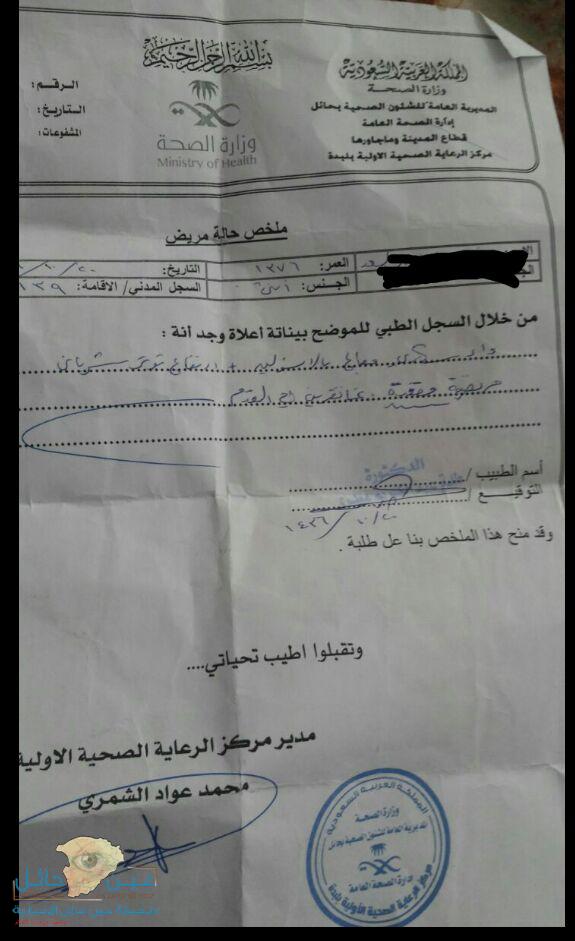 بسم الله الرحمن الرحيم
المملكة العربية السعودية
وزارة الصحة
المديرية العامة للشئون الصحية بحائل
إدارة الصحة العامة
قطاع المدينة وماجاورها
مركز الرعاية الصحية الاولية بلبدة
وزارة الصحة
Ministry of Health
الرقم:
التاريخ:
المشفوعات:
ملخص حالة مريض
العمر: ١٣٧٦
التاريخ:
الجنس: أنثى
السجل المدني/ الاقامة: ١٣٩
من خلال السجل الطبي للموضح بيناتة أعلاة وجد أنة :
داء سكري معالج بالانسولين + ارتفاع توتر شرياني
مريضة مقعدة
أسم الطبيب /
الدكتورة
التوقيع /
١٤٣٦
وقد منح هذا الملخص بنا عل طلبة .
وتقبلوا اطيب تحياتي....
مدير مركز الرعاية الصحية الاولية
محمد عواد الشمري
المملكة العربية السعودية
وزارة الصحة
المديرية العامة للشئون الصحية بحائل
إدارة الصحة العامة
مركز الرعاية الصحية الأولية بلبدة
عين حائل
صحيفة عين حائل الإخبارية